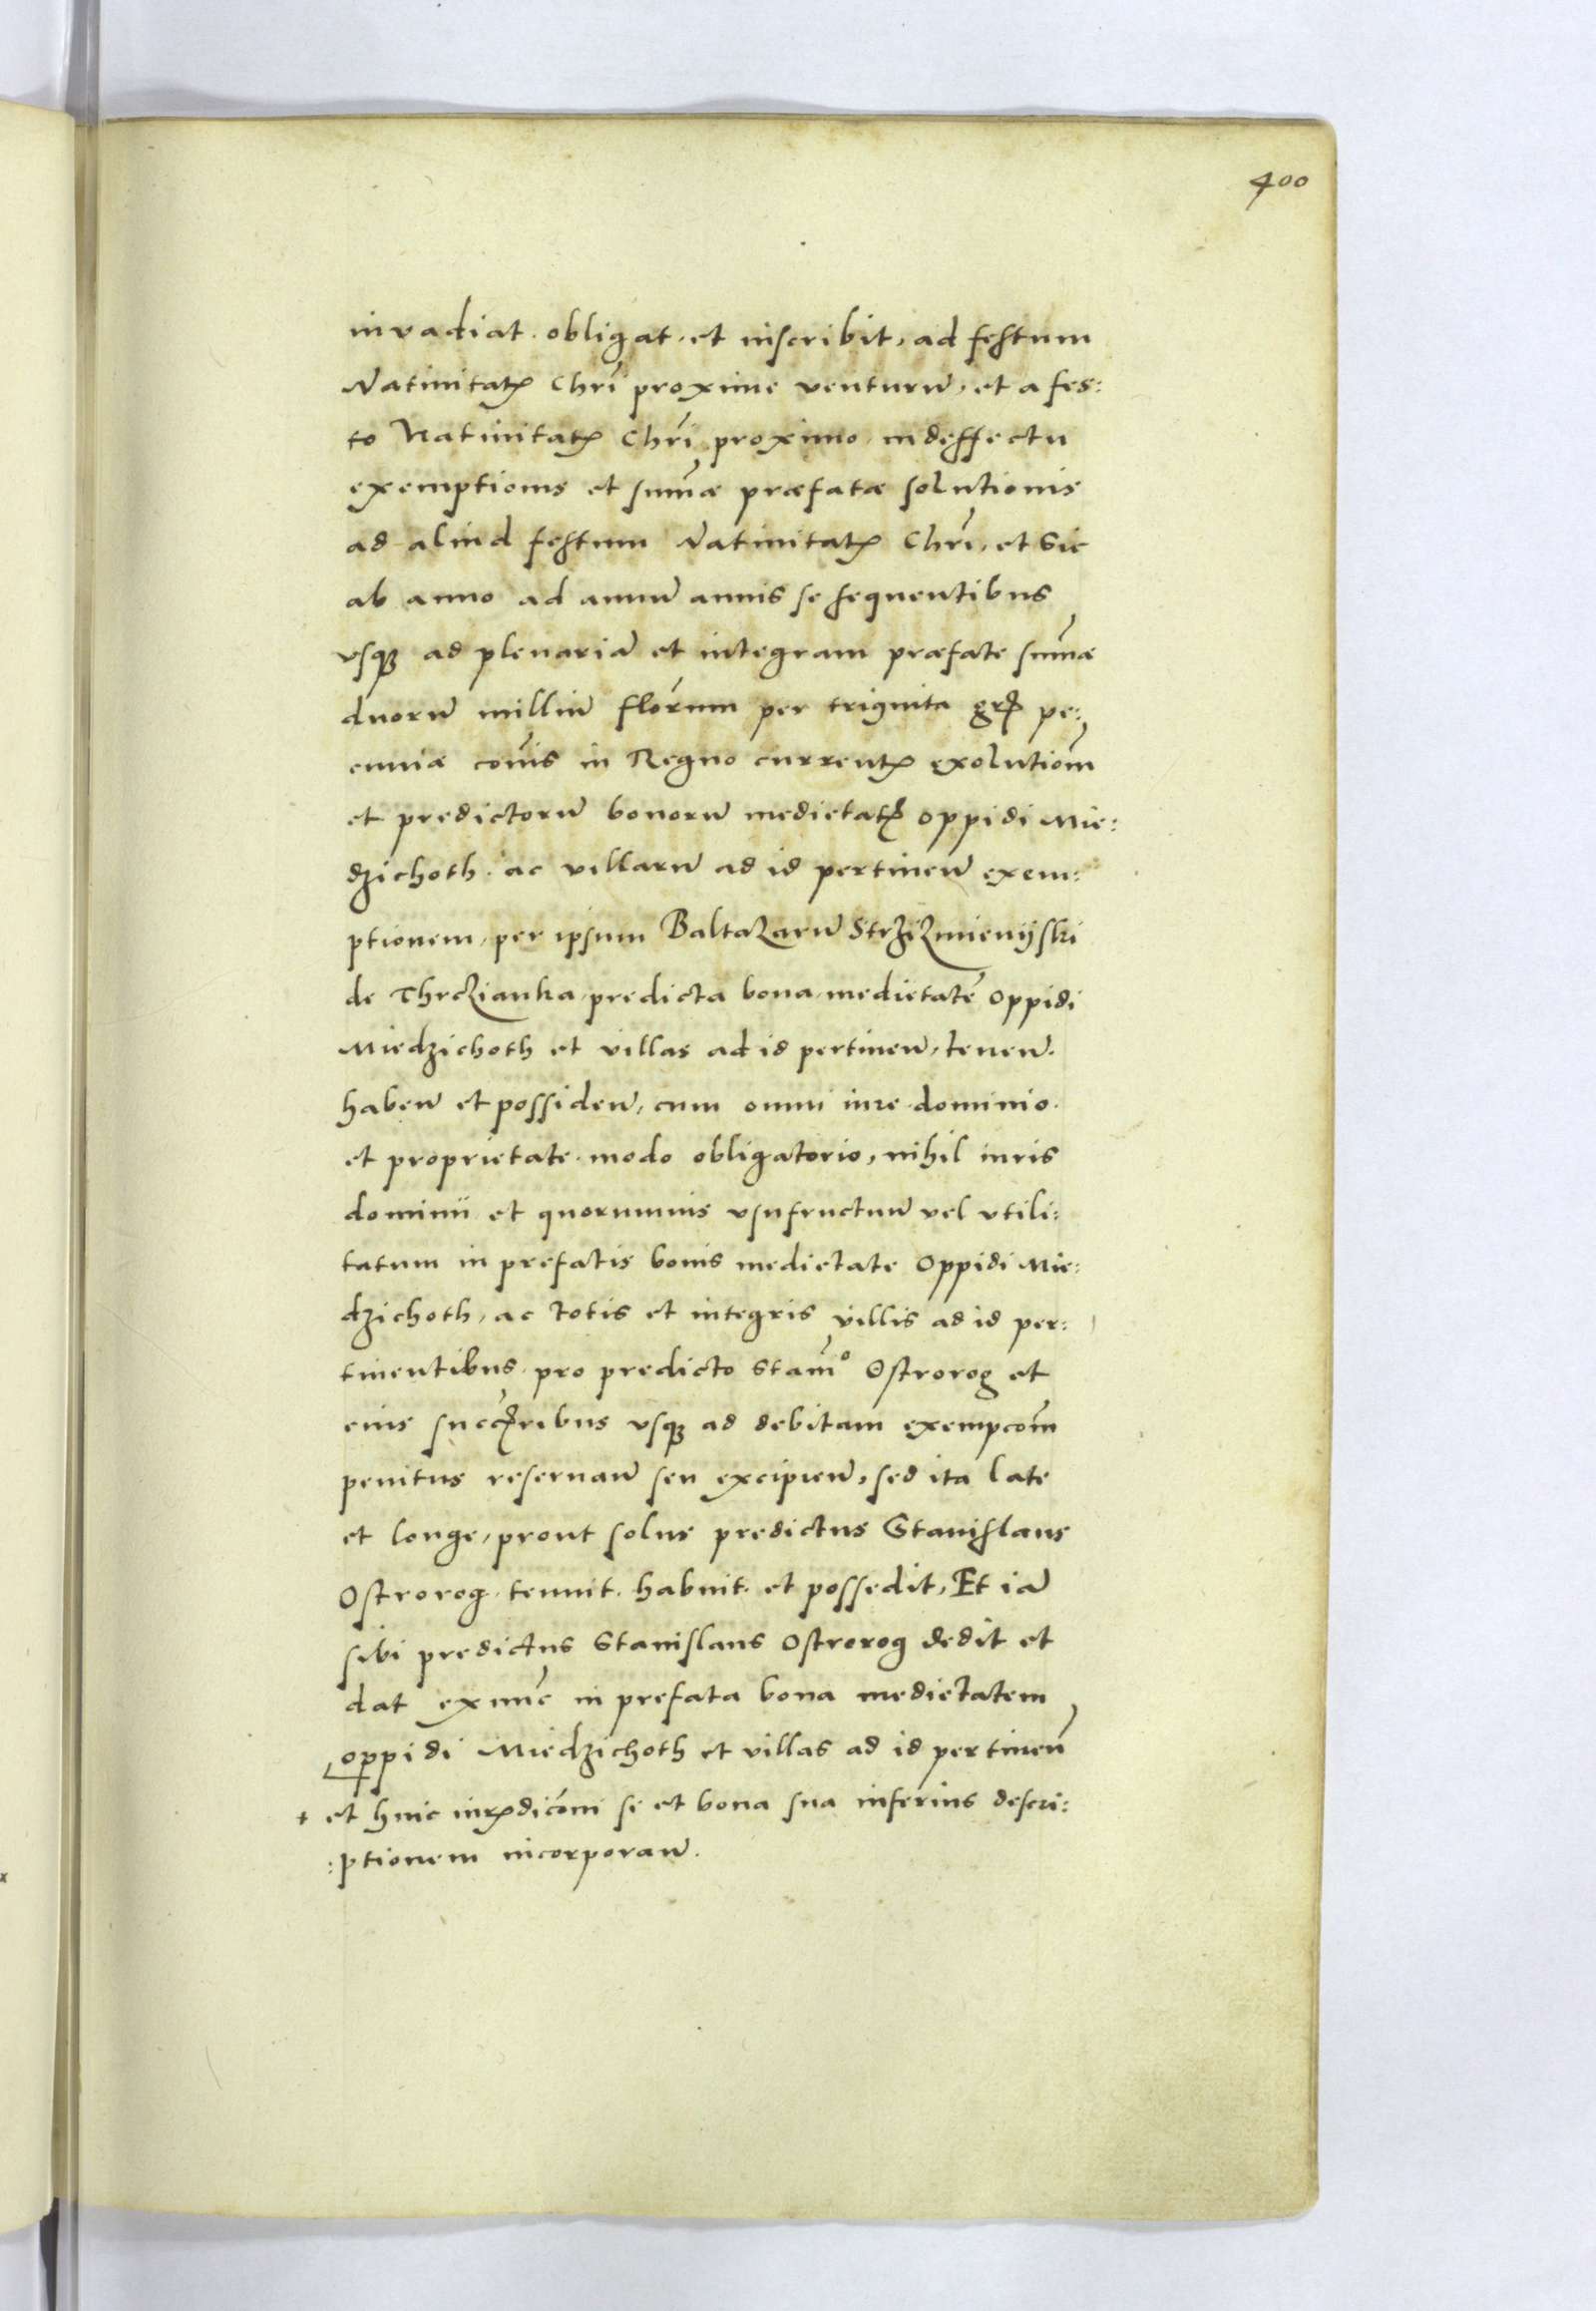 400
invadiat. obligat. et inscribit, ad festum
Nativitatꝭ Chri̅ proxime venturu̅, et a fes:
to Nativitatꝭ Chri̅ proximo in deffectu
exemptionis et sum̅æ præfatæ solutionis
ad aliud festum Nativitatꝭ Chri̅, et sic
ab anno ad annu̅ annis se sequentibus
vsqꝫ ad plenaria̅ et integram præfate sum̅æ
duoru̅ milliu̅ flor̅um per triginta grꝭ pe:
cuniæ co̅is in Regno currentꝭ exolutiom̅
et predictoru̅ bonoru̅ medietatꝭ oppidi Mie:
dzichoth. ac villaru̅ ad id pertinen̅ exem:
ptionem, per ipsum Baltazaru̅ Strzizmienijski
de Thrczianka, predicta bona, medietate̅ oppidi
Miedzichoth et villas ad id pertinen̅, tenen̅.
haben̅ et possiden̅, cum omni iure. dominio.
et proprietate. modo obligatorio, nihil iuris
dominii et quorumuis vsufructuu̅ vel vtili:
tatum in prefatis bonis medietate Oppidi Mie:
dzichoth, ac totis et integris villis ad id per:
tinentibus. pro predicto Stani̅o Ostrorog et
eius succꝭribus vsqꝫ ad debitam exempcom̅
penitus reseruan̅ seu excipien̅, sed ita late
et longe, prout solus predictus Stanislaus
Ostrorog. tenuit. habuit. et possedit, Et ia̅
sibi predictus Stanislaus Ostrorog dedit et
dat exnu̅c in prefata bona medietatem
oppidi Miedzichoth et villas ad id pertinen̅
+ et huic iurꝭdico̅ni se et bona sua inferius descri:
:ptionem incorporan̅.